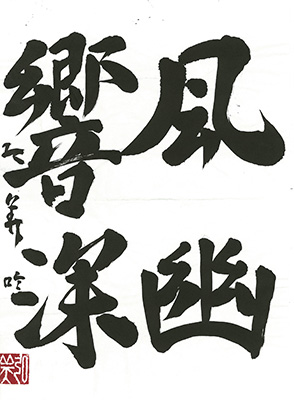 風幽
響深